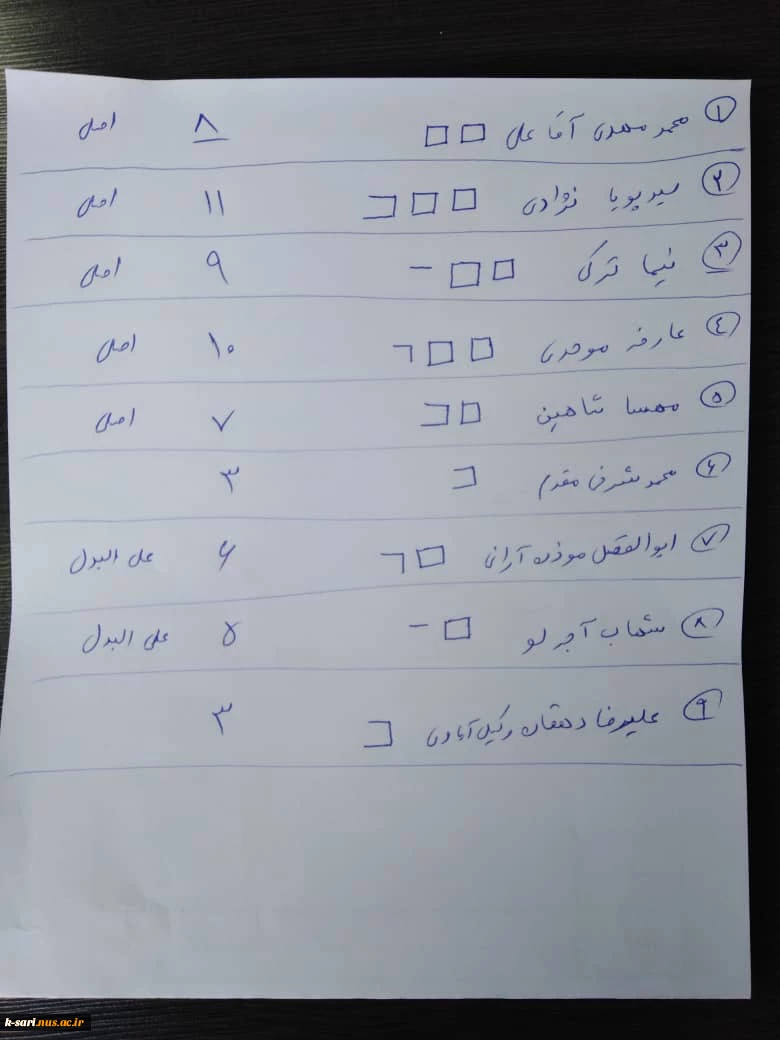 ۱ محمد مهدی آقا علی ۸ اصلی
۲ سید پویا نژادی ۱۱ اصلی
۳ نیما ترکی ۹ اصلی
۴ عارفه موحدی ۱۰ اصلی
۵ مهسا شاهین ۷ اصلی
۶ محمد شرفی مقدم ۳
۷ ابوالفضل موذن آرانی ۶ علی البدل
۸ شهاب آجرلو ۵ علی البدل
۹ علیرضا دهقان وکیل آبادی ۳
k-sari.nus.ac.ir